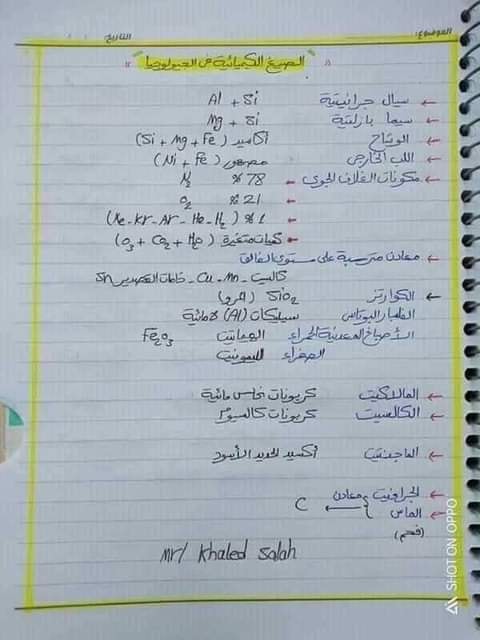 الموضوع: التاريخ: / /
" الصيغ الكيميائية في الجيولوجيا "
← سيال جرانيتية Al + Si
← سيما بازلتية Mg + Si
← الوشاح أكاسيد (Si + Mg + Fe)
← اللب الخارجي مصهور (Ni + Fe)
← مكونات الغلاف الجوي - 78 % N₂
- 21 % O₂
- 1 % (Ne - Kr - Ar - He - H₂)
كميات متغيرة (O₃ + CO₂ + H₂O)
← معادن مترسبة على مستوى الفالق
كالسيت - Cu - Mn - خامات القصدير Sn
← الكوارتز SiO₂ (مرو)
الفلسبار البوتاسى سيليكات (Al) لا مائية
الأصباغ المعدنية الحمراء الهيماتيت Fe₂O₃
الصفراء الليمونيت
← المالاكيت كربونات نحاس مائية
← الكالسيت كربونات كالسيوم
← الماجنتيت أكسيد الحديد الأسود
← الجرافيت
← الماس } معادن ← C
(فحم)
mr/ Khaled Salah
SHOT ON OPPO